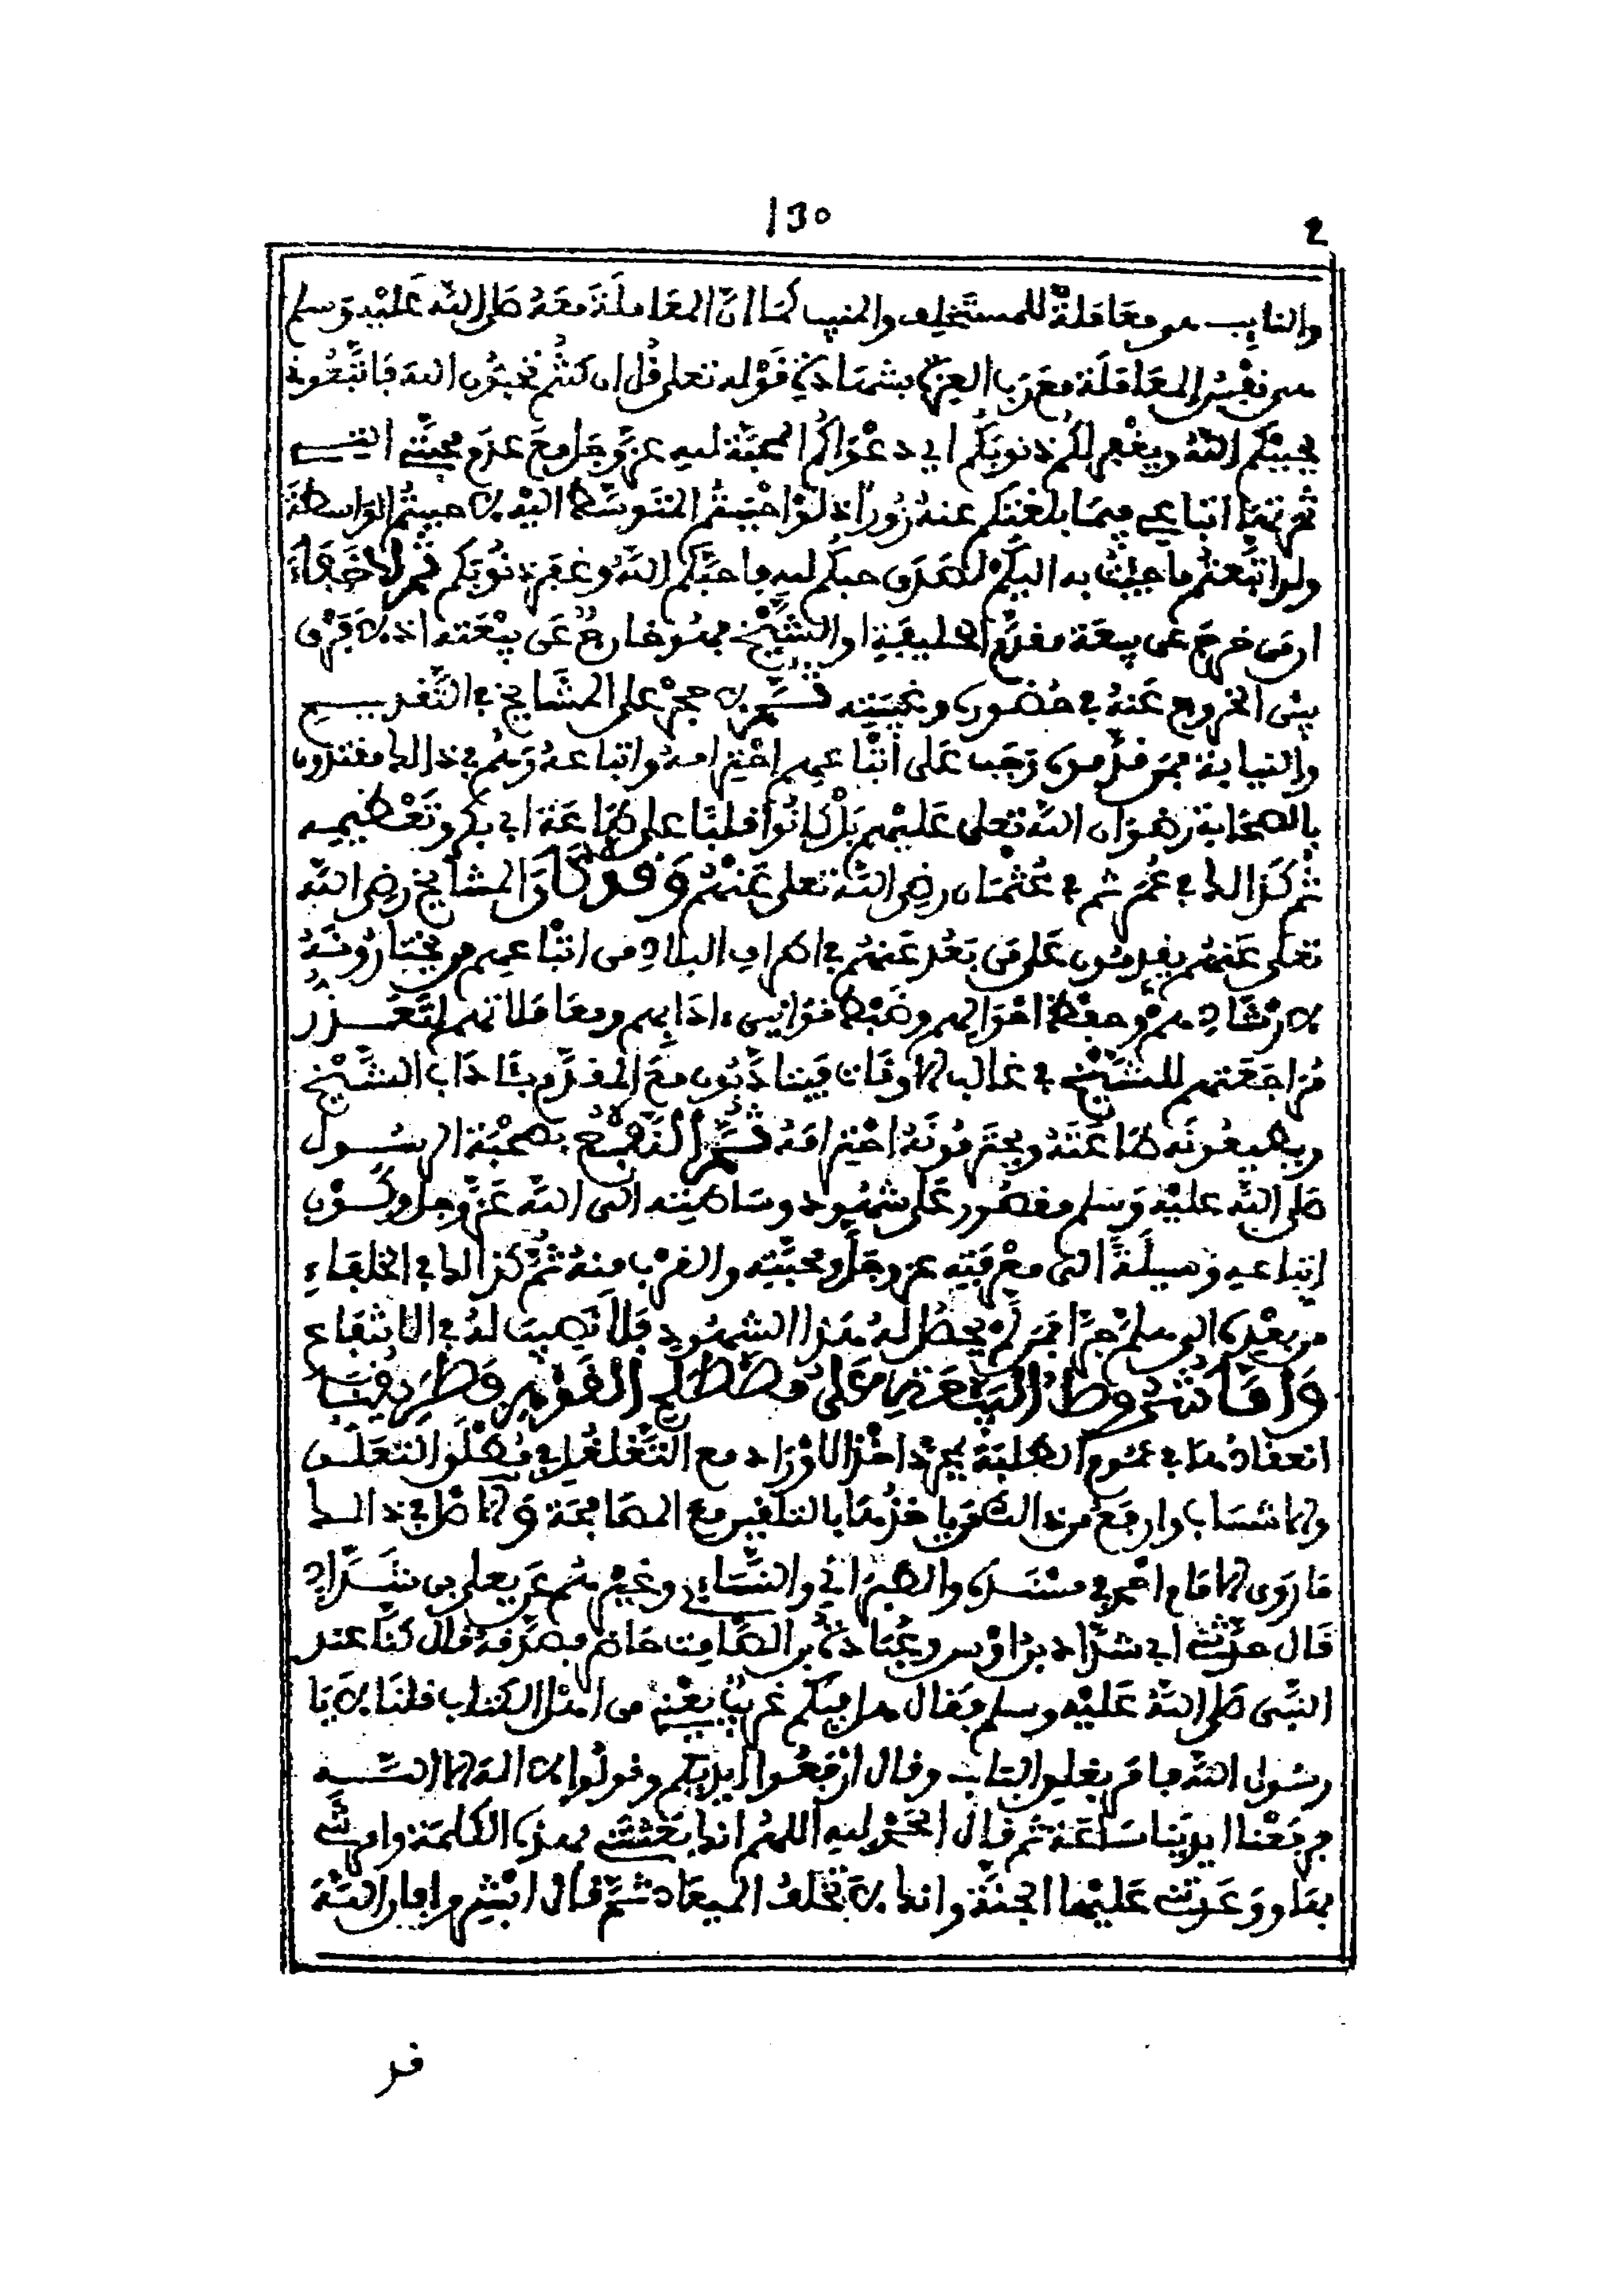 130
2
والنايب هو معَامَلةٌ للمستَخلِف والمنيب كمَا انَّ المعَاملَةَ معَهُ صَلى اللّه عَلَيْهِ وَسلم
هى نفْسُ المعَامَلَة معَ رَب العِزَّة بشهَادَة قَوْله تعلى قُل ان كنتُم تُحِبّون اللّه فَاتَّبَعُونِ
يحببْكم اللّهُ ويغْفِر لكُم ذنوبَكُم اي دعْوَاكُم المحبّة لله عزَّ وَجَل معَ عدَم محبَّتِي التِي
ثمرتهَا اتباعِي فيمَا بلغتكم عنهُ زُوراً اذ لوْ احْبَبتُم المتوسّط اليْه لاحببتُم الوَاسطةَ
ولو اتّبَعتم ما جئتُ به اليكُمْ لصَدَق حبكُم لله واحبَّكم اللّه وغفَر ذنُوبَكم ثم لا خَفَاءَ
ان مَن خرجَ عن بيعَة مقدَّم الخليفَةِ او الشَّيْخ فهُو خارجٌ عَن بيْعَته اذ لا فَرْق
بيْن الخروج عَنهُ في حُضورِه وغيْبَتِه ثم لا حجرْ على المشَايخ في التَّقديـم
والنيابة فمَن قدَّموهُ وَجَب عَلى أتْبَاعِهم احْتِرامهُ واتباعهُ وَهُم في ذالك مقتدون
بالصحَابة رضوَان اللّه تعلى عَليْهم بَلْ كَانُوا قلبًا على طَاعَة ابي بكر وتَعْظيمِه
ثُم كَذالك في عُمَر ثم في عُثمَان رضِى اللّه تعلى عَنهُم وَقد كَانَ المشايخ رضِى اللّه
تعلى عَنهُم يقدمُون عَلى مَن بَعُد عَنهُم في اطراف البلادِ من اتبَاعِهم من يختارُونَهُ
لارْشَادِهمْ وحفْظ احْوَالهم وضَبْط قوَانين ءادَابِهم ومعَامَلاتهم لِتَعَــذُّر
مُرَاجَعَتِهم للشَّيْخ في غالب الاوقَات فيتَادَّبُون معَ المقدَّم بئَادَاب الشَّيْخ
ويطيعُونَه طَاعَتَهُ ويحتَرمُونَهُ احْتِرامَهُ ثم النّفْع بصحْبَة الرسُـول
صَلى اللّه عليْه وَسلم مقصُور عَلى شهُود وسَاطتِه الى اللّه عَزَّ وجل وكَـوْن
اتباعِه وَسِيلَةً الى معْرفَتِه عز وجَلَّ ومحبَّتِه والقرْب منهُ ثمَّ كذالك في الخلفَاءِ
من بعْدِه الى هلم جَرّا فمَن لَم يحصُل لهُ هَذا الشهُود فَلا نَصِيبَ لهُ في الانتفَاع
وَامَا شُرُوط البَيعَة عَلى مُصطَلح القَوم وَطَريقِتِنَا
انعقادُهَا في عمُوم الطلَبَة بمجَرَّد اخْذ الاوْرَاد مع التَّغلغُل في مُطْلَق التعَلُّـق
والانتسَاب وارفَعُ من ذالك قَدرا اخذُهَا بالتلقين مع المصَافحَة وَالاصْل في ذالـك
مَا رَوَى الامَام احْمد في مسْنَـدِه والطبَرَاني والنسَّاءي وغيْرهُم عَن يعلى بن شدَّادٍ
قَال حدَّثَنِي ابي شدَّاد بنُ اوْس وعُبَادةُ بن الصَّامِت حَاضر يصَدّقهُ قال كنَّا عند
النَّبِي صَلى اللّهُ عَلَيْه وسلم فَقال هل فيكُم غريبٌ يعْنِي من اهْل الكتاب قلنَا لا يَا
رسُول اللّه فامَر بغلق البَاب وقال ارْفعُوا ايديكم وقولُوا لا اله الا اللّـه
فرفَعْنا ايديَنا سَاعَة ثم قال الحَمْد لله اللهُم انك بَعَثتَنِي بهذه الكلمَة وامرتَنِي
بهَا ووَعَدتَنِي عَليْهَا الجنَّة وانك لا تخلفُ الميعَاد ثمَّ قال ابْشِروا فان اللّهَ
قد